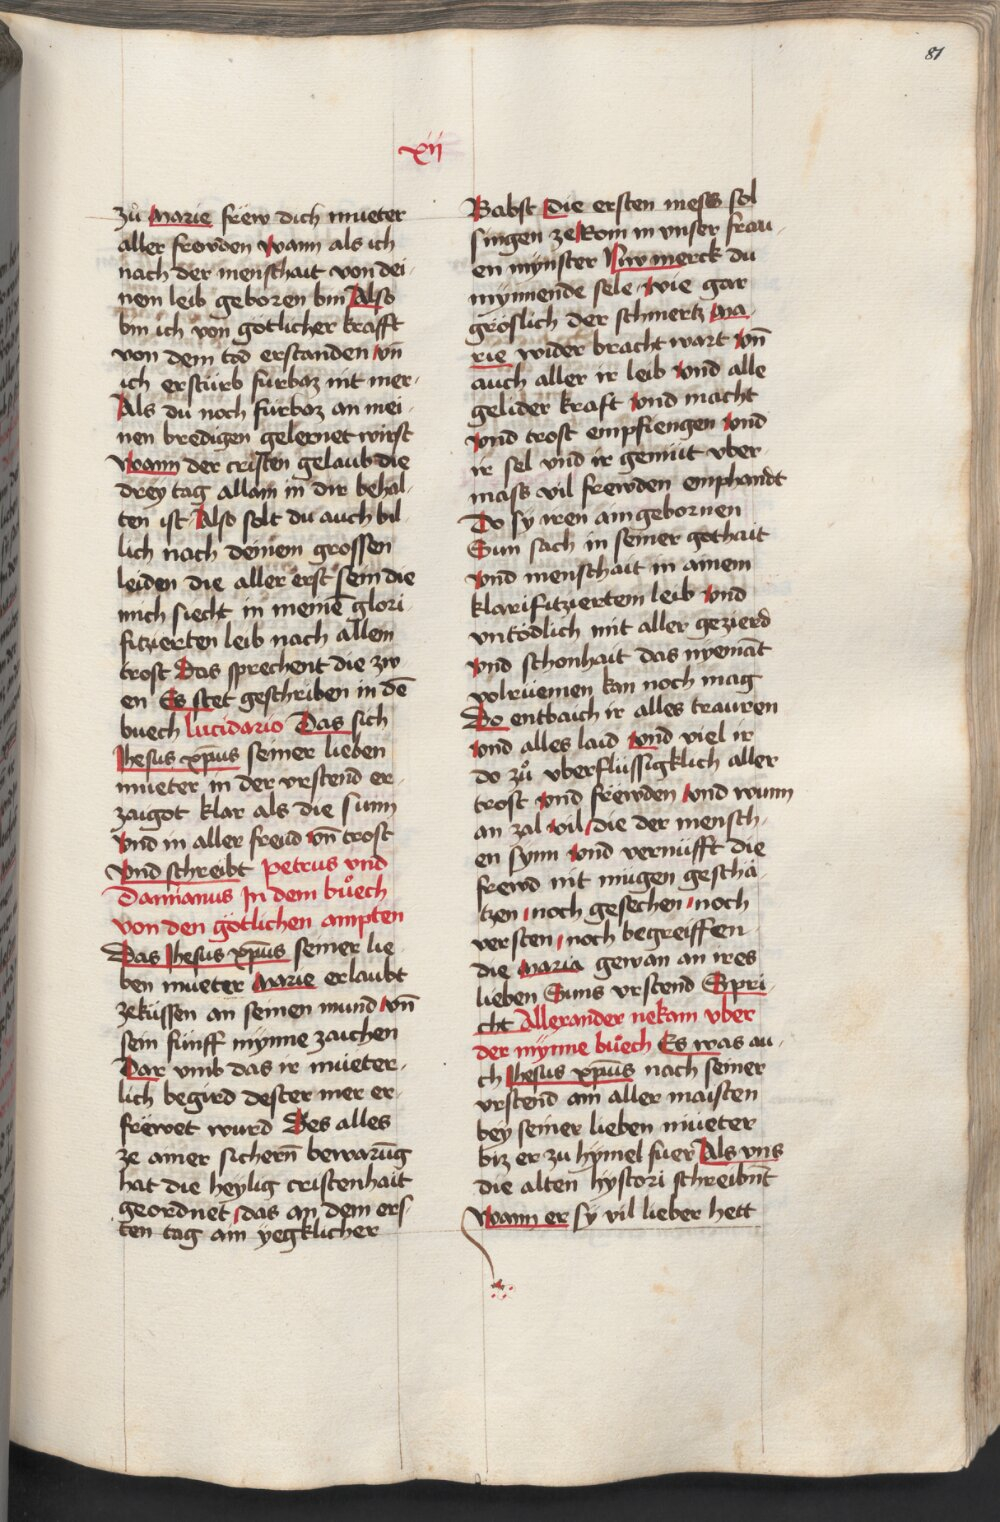 81
xij
zů Marie frëw dich mueter
aller frewden Wann als ich
nach der menschait von dei-
nem leib geboren bin Also
bin ich von götlicher krafft
von dem tod erstanden vn̄
ich erstürb fürbaz nit mer.
Als du noch fürbaz an mei-
nen bredigen gelernet wirst
Wann der cristen gelaub die
drey tag allain in dir behal-
ten ist Also solt du auch bil-
lich nach deinem grossen
leiden die aller erst sein die
mich siecht in meinē glori-
fitzierten leib nach allem
trost Das sprechent die zw-
en Es stet geschriben in dē
buech Lucidario Das sich
Jhesus xp̄us seiner lieben
mueter in der vrstend er-
zaigot klar als die sunn
Vnd in aller freud vn̄ trost
Vnd schreibt Petrus vnd
Damianus In dem bůech
von den götlichen ampten
Das Jhesus xp̄us seiner lie-
ben mueter Marie erlaubt
zeküssen an seinen mund vn̄
sein fünff mynne zaichen
Dar vmb das ir mueter-
lich begird dester mer er-
frëwet wurd Des alles
ze ainer sichern̄ bewarūg
hat die heylig cristenhait
geordnet das an dem ers-
ten tag am yegklicher
Babst Die ersten mess sol
singen ze Rom in vnser frau-
en mynster Nw merck du
mynnende sele wie gar
gröslich der schmertz Ma-
rie wider bracht wart vn̄
auch aller ir leib vnd alle
gelider kraft vnd macht
vnd trost empfiengen vnd
ir sel vnd ir gemüt vber-
mass vil frewden emphandt
Do sy iren aingebornen
Sun sach in seiner gothait
vnd menschait in ainem
klarifitziertem leib vnd
vntödlich mit aller gezierd
vnd schonhait das nyemāt
volrüemen kan noch mag
Do entbaich ir alles trauren
vnd alles laid vnd viel ir
do zů vberflüssigklich aller
trost vnd frëwden vnd wunn
an zal vil die der mensch-
en synn vnd vernüfft die
frewd nit mugen geschä-
tzen noch gesechen noch
versten noch begreiffen
die Maria gewan an ires
lieben Suns vrstend Spri-
cht Allexander nekam vber
der mynne bůech Es was au-
ch Jhesus xp̄us nach seiner
vrstend am aller maisten
bey seiner lieben mueter
biz er zu hymel fuer Als vns
die alten hystori schreibn̄t
Wann er sy vil lieber hett